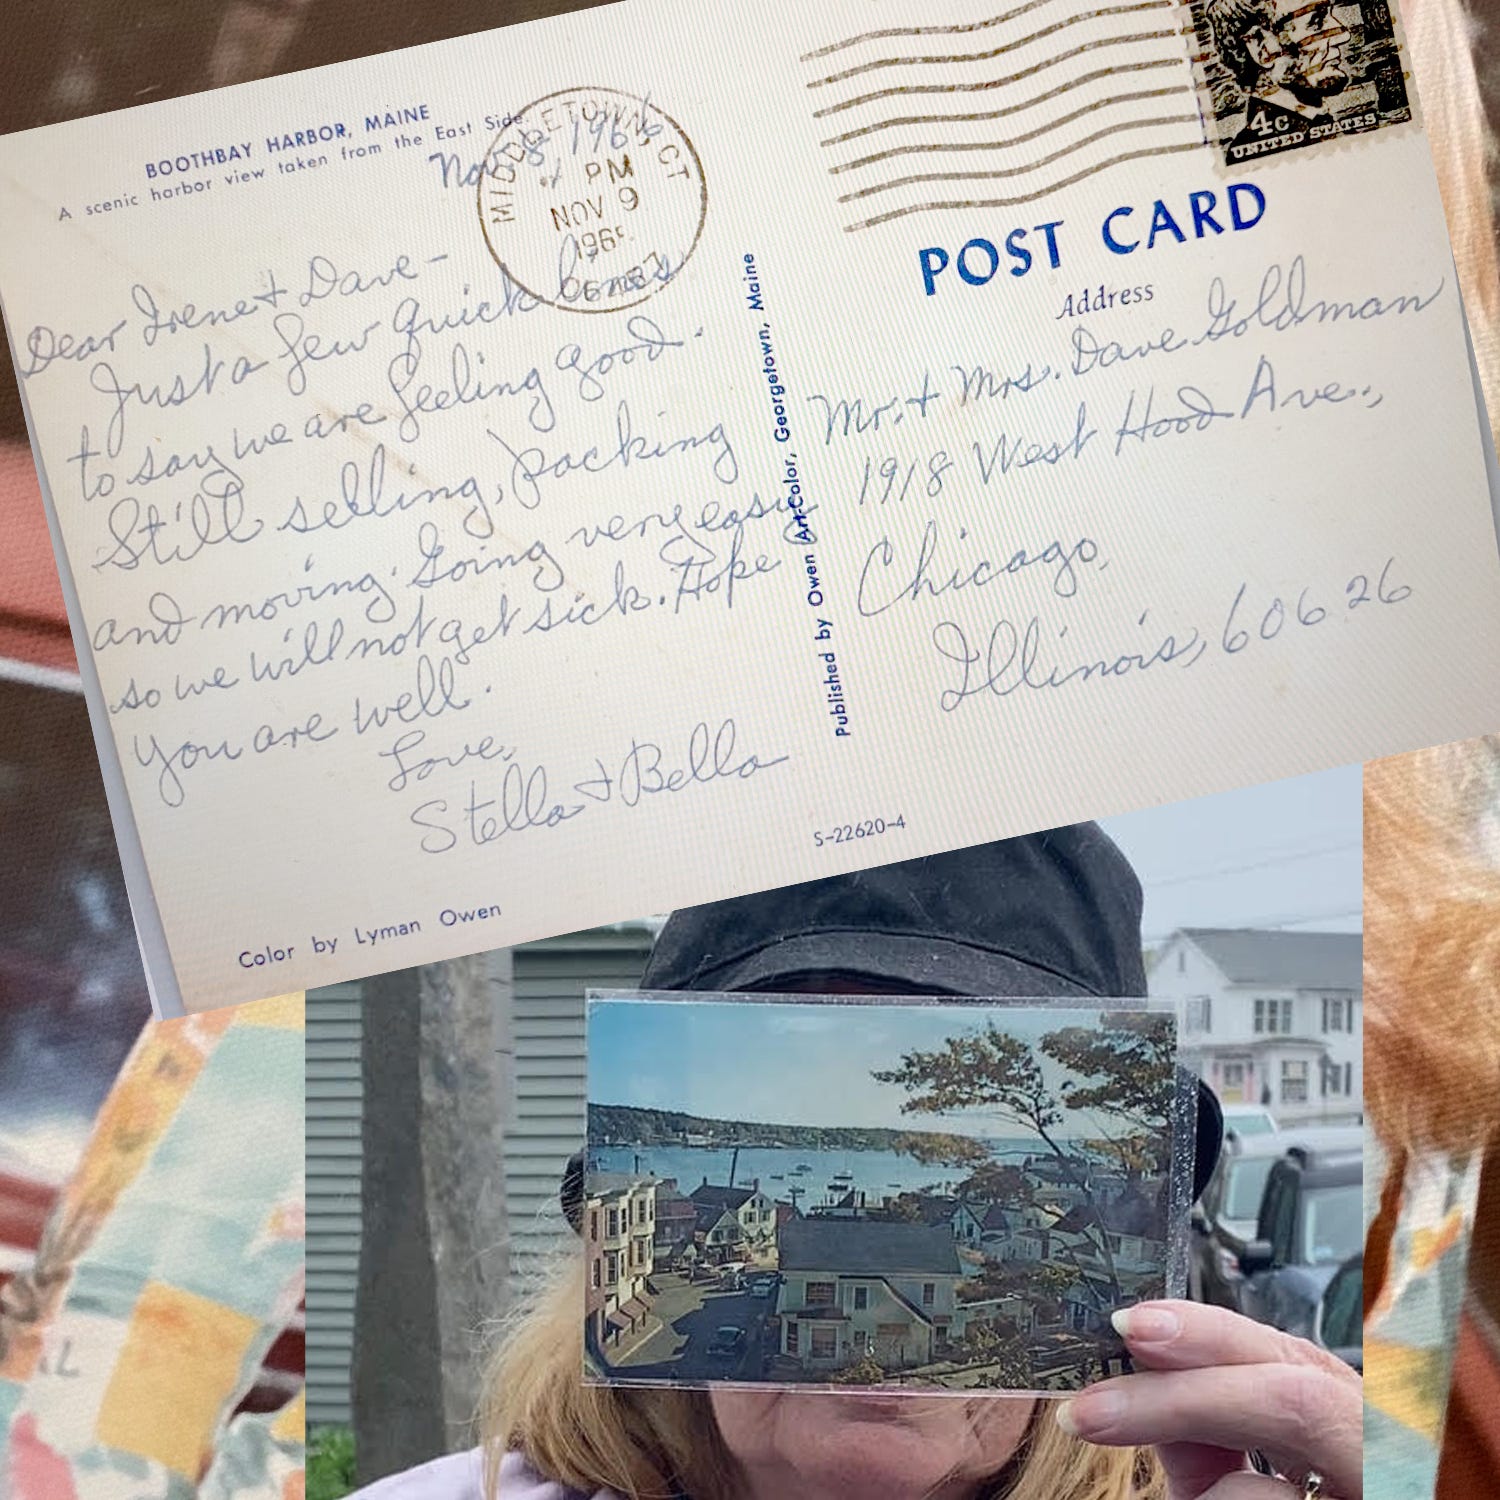 BOOTHBAY HARBOR, MAINE
A scenic harbor view taken from the East Side.
Nov. 8 1966
MIDDLETOWN, CT
PM
NOV 9
Dear Irene + Dave -
Just a few quick lines
to say we are feeling good.
Still selling, packing
and moving. Going very easy
so we will not get sick. Hope
you are well.
Love,
Stella + Bella
Color by Lyman Owen
Published by Owen Art-Color, Georgetown, Maine
4c
UNITED STATES
POST CARD
Address
Mr. + Mrs. Dave Goldman
1918 West Hood Ave.,
Chicago,
Illinois, 60626
S-22620-4